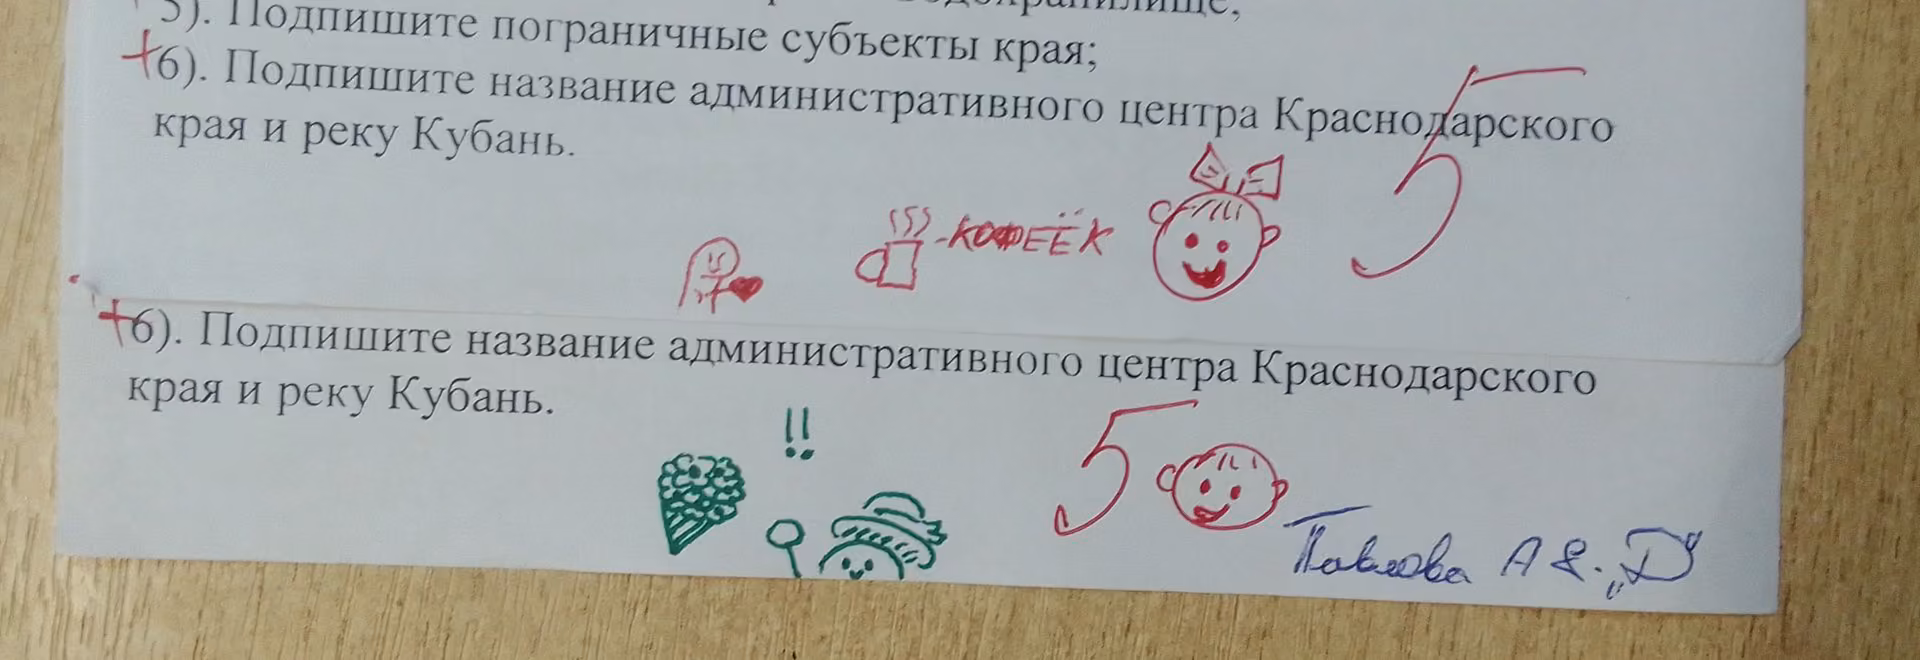 5). Подпишите пограничные субъекты края;
+6). Подпишите название административного центра Краснодарского
края и реку Кубань.
5
-КОФЕЁК
+6). Подпишите название административного центра Краснодарского
края и реку Кубань.
!!
5
Павлова А 8. „D"